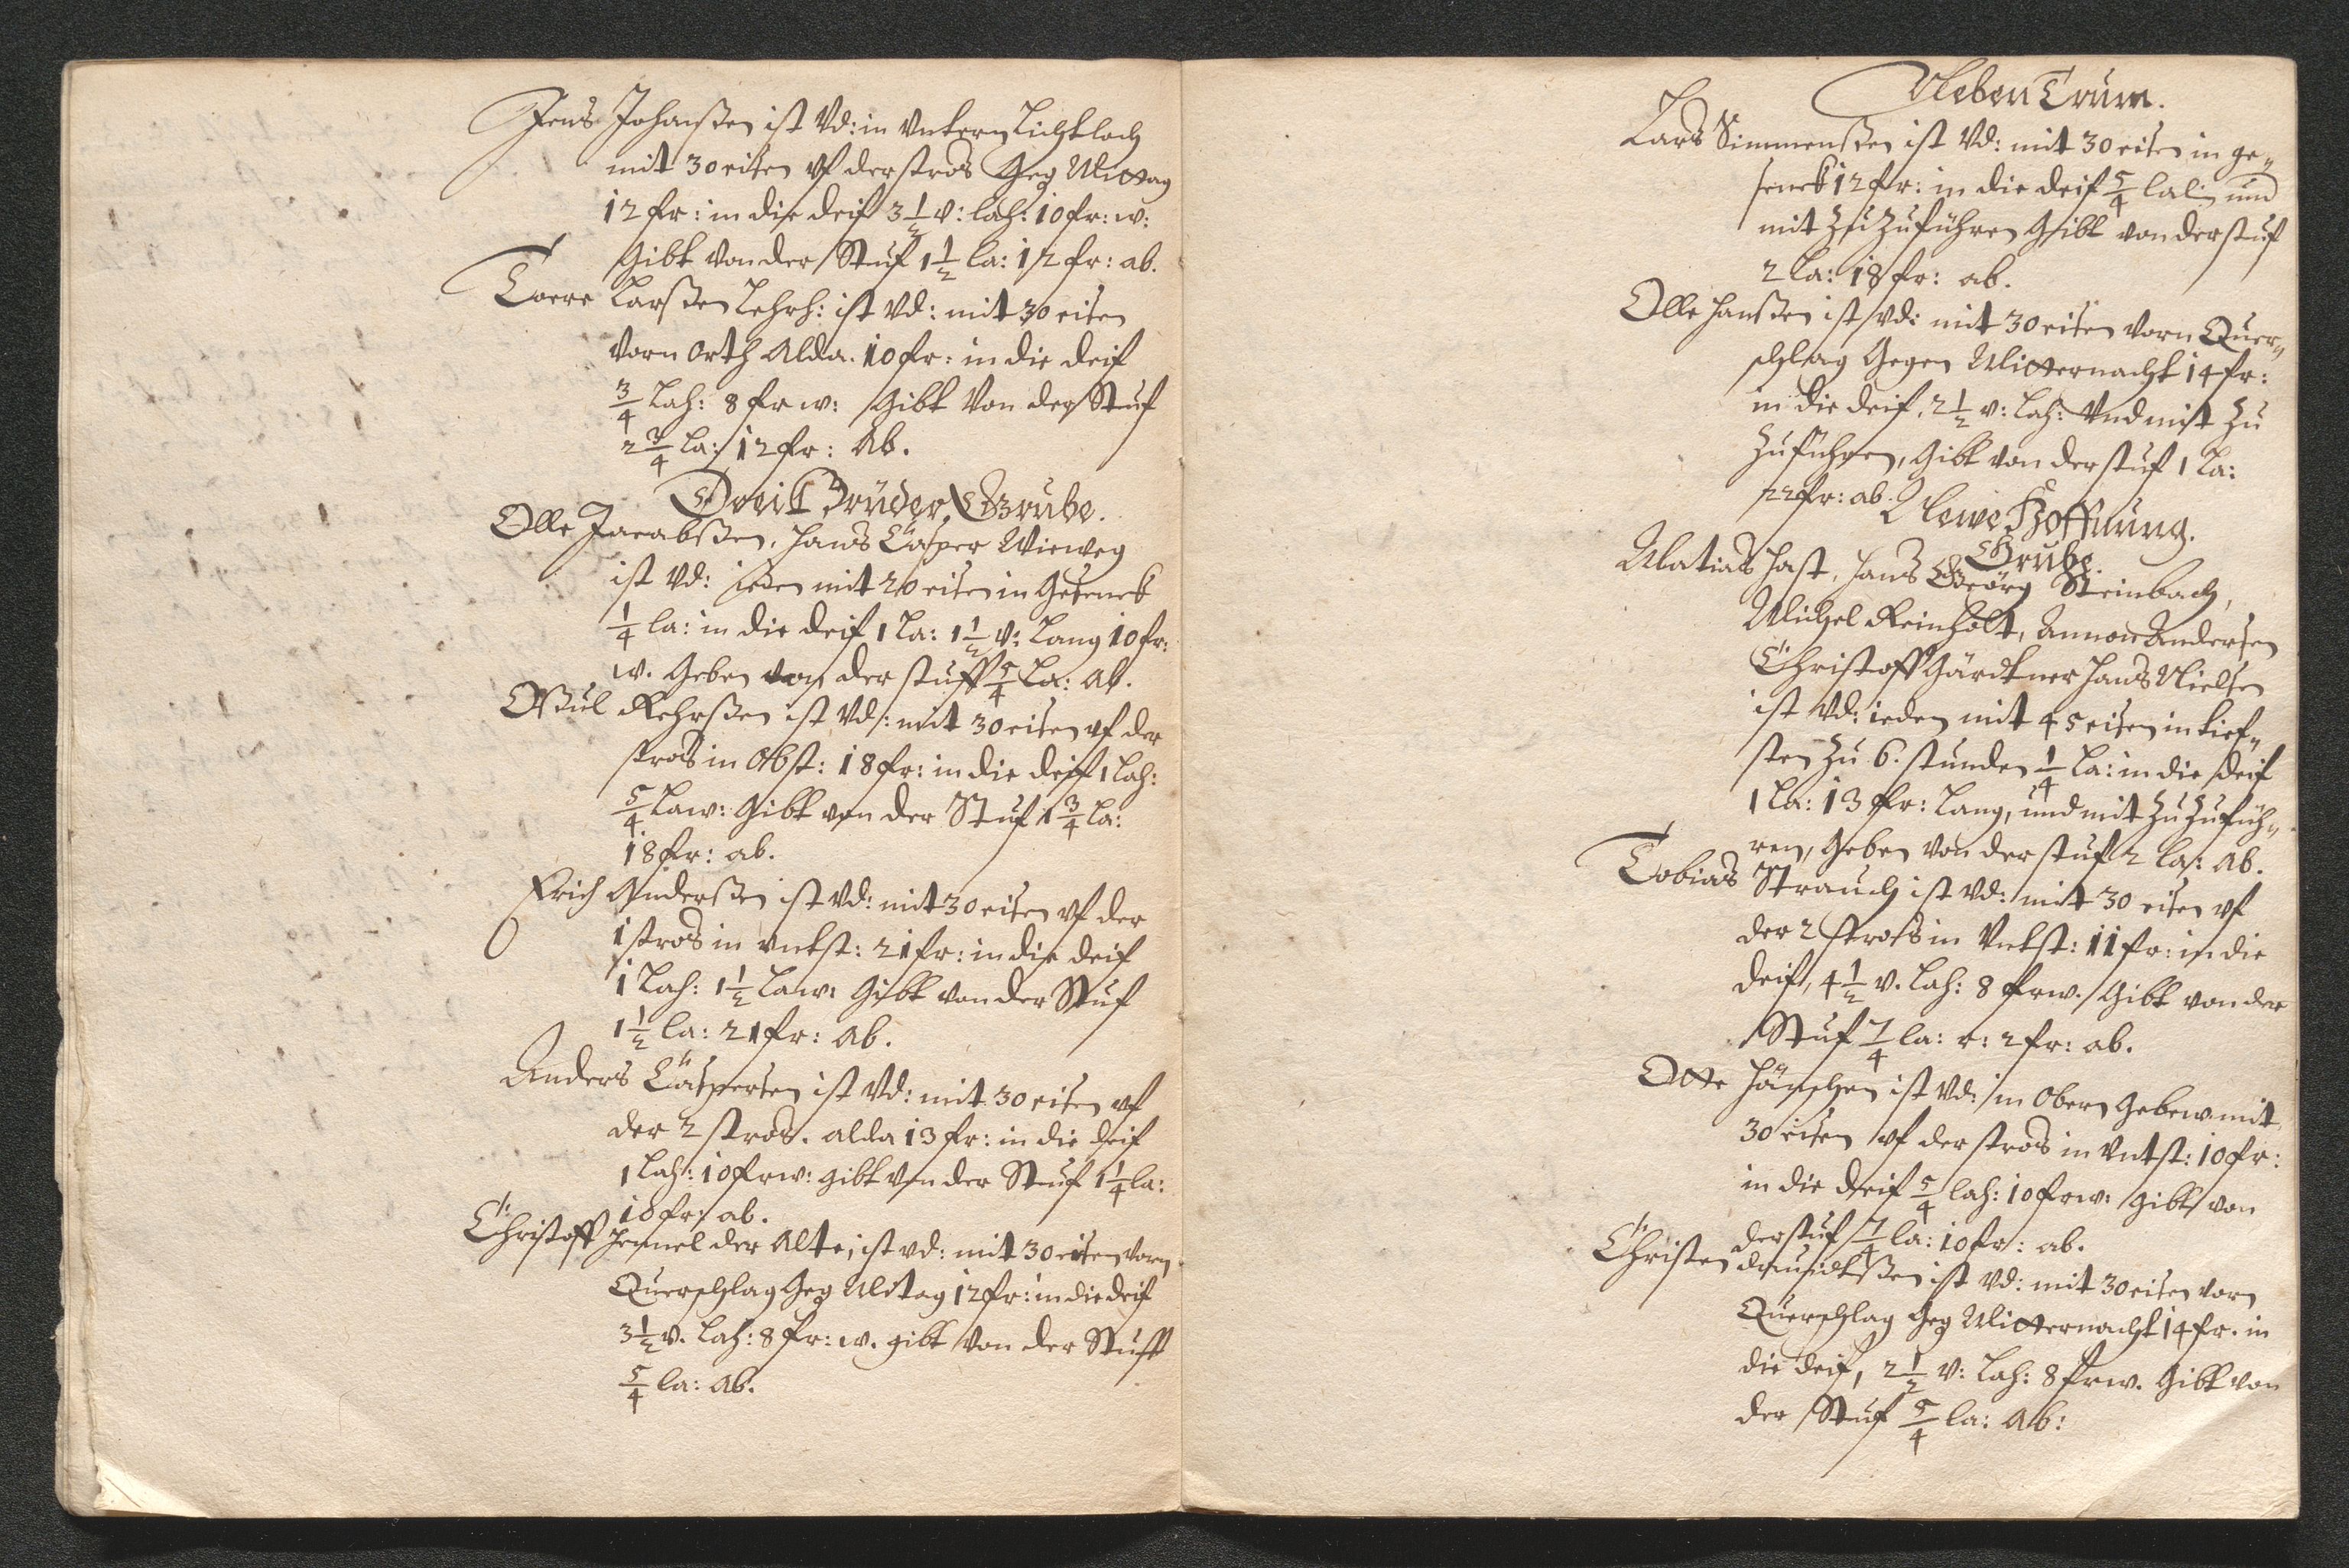 Jens Johanßen ist Vd: in Vntern Lichtloch
mit 30 eisen vf der stros Geg Mittag
12 fr: in die deif 3 1/2 v: lah: 10 fr: w:
Gibt von der Stuf 1 1/2 la: 12 fr: ab.
Toere Larßen Lehrh: ist Vd: mit 30 eisen
Vorn Orth Alda. 10 fr: in die deif
3/4 Lah: 8 fr w: Gibt Von der Stuf
2 3/4 la: 12 fr: Ab.
Dreÿ Brüder, Grube.
Olle Jacabßen, Hans Casper Wieweg
ist Vd: ieden mit 20 eisen in Gesenck
1/4 la: in die deif 1 La: 1 1/2 v: Lang 10 fr:
w. Geben von der stuff 5/4 La: Ab.
Aßul Rehrßen ist Vd: mit 30 eisen vf der
stros in Obst: 18 fr: in die deif 1 Lah:
5/4 Law: Gibt von der Stuf 1 3/4 La:
18 fr: ab.
Erich Anderßen ist Vd: mit 30 eisen vf der
1 stros in vntst: 21 fr: in die deif
1 Lah: 1 1/2 Law: Gibt von der Stuf
1 1/2 la: 21 fr: ab.
Anders Caspersen ist Vd: mit 30 eisen vf
der 2 stros. alda 13 fr: in die deif
1 Lah: 10 frw: gibt von der Stuf 1 1/4 la:
10 fr: ab.
Christoff Hemel der Alte, ist vd: mit 30 eisen vorn
Querschlag Geg Mitag 12 fr: in die deif
3 1/2 v. Lah: 8 fr: w. gibt von der Stuff
5/4 la: Ab.
Neben Trum.
Lars Simmenßen ist Vd: mit 30 eisen in ge„
senck 12 fr: in die deif 5/4 lali und
mit Zu Zuführen Gibt von der stuf
2 La: 18 fr: ab.
Olle Hanßen ist vd: mit 30 eisen vorn Quer„
schlag Gegen Mitternacht 14 fr:
in die deif, 2 1/2 v: Lah: Vnd mit Zu
Zuführen, Gibt von der stuf 1 La:
22 fr: ab.
Newe Hoffnung.
Grube.
Matias Hast, Hans Georg Steinbach,
Michel Reinholt, Andersen
Christoff Gärdtner Hans Nielsen
ist Vd: ieden mit 45 eisen in tief„
sten Zu 6. stunden 1/4 La: in die deif
1 La: 13 fr: Lang, und mit Zu Zufüh„
ren, Geben von der stuf 2 la: Ab.
Tobias Strauch ist Vd: mit 30 eisen vf
der 2 stros in Vntst: 11 fr: in die
deif, 4 1/2 v. Lah: 8 frw. Gibt von der
Stuf 7/4 la: r: 2 fr: ab.
Otte Hänschen ist Vd: in Obern Gebew mit
30 eisen vf der stros in vntst: 10 fr:
in die deif 5/4 lah: 10 frw: gibt von
der stuf 7/4 la: 10 fr: ab.
Christen ist Vd: mit 30 eisen vorn
Querschlag Geg Mitternacht 14 fr. in
die deif, 2 1/2 v: Lah: 8 frw. Gibt von
der Stuf 5/4 la: Ab: